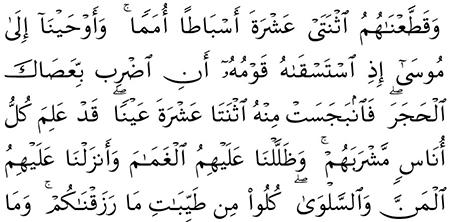 وَقَطَّعۡنَٰهُمُ ٱثۡنَتَيۡ عَشۡرَةَ أَسۡبَاطًا أُمَمٗاۚ وَأَوۡحَيۡنَآ إِلَىٰ
مُوسَىٰٓ إِذِ ٱسۡتَسۡقَىٰهُ قَوۡمُهُۥٓ أَنِ ٱضۡرِب بِّعَصَاكَ
ٱلۡحَجَرَۖ فَٱنۢبَجَسَتۡ مِنۡهُ ٱثۡنَتَا عَشۡرَةَ عَيۡنٗاۖ قَدۡ عَلِمَ كُلُّ
أُنَاسٖ مَّشۡرَبَهُمۡۚ وَظَلَّلۡنَا عَلَيۡهِمُ ٱلۡغَمَٰمَ وَأَنزَلۡنَا عَلَيۡهِمُ
ٱلۡمَنَّ وَٱلسَّلۡوَىٰۖ كُلُواْ مِن طَيِّبَٰتِ مَا رَزَقۡنَٰكُمۡۚ وَمَا